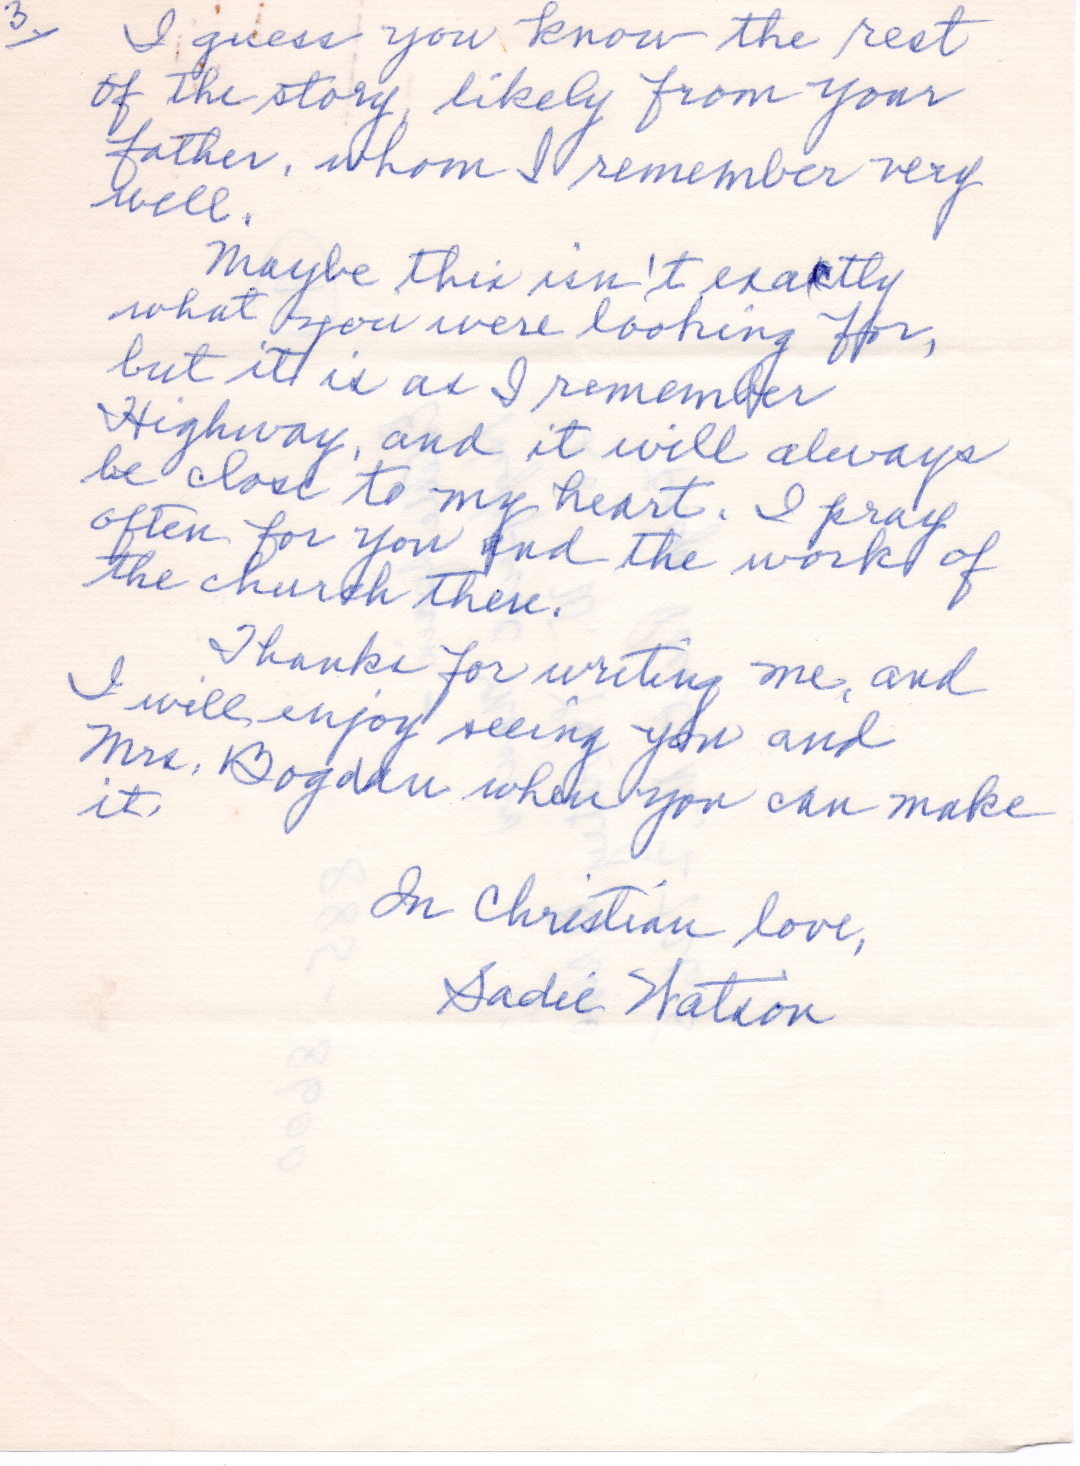 3
I guess you know the rest
of the story, likely from your
father, whom I remember very
well.
Maybe this isn't exactly
what you were looking for,
but it is as I remember
Highway, and it will always
be close to my heart. I pray
often for you and the work of
the church there.
Thanks for writing me, and
I will enjoy seeing you and
Mrs. Bogdan when you can make
it.
In Christian love,
Sadie Watson